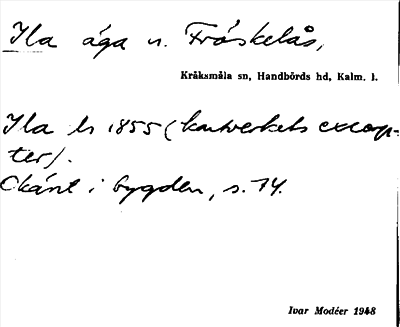 Ila äga n. Fröskelås,
Kråksmåla sn, Handbörds hd, Kalm. l.
Ila ls 1855 (kartverkets excep-
ter).
Okänt i bygden, s. 74.
Ivar Modéer 1948